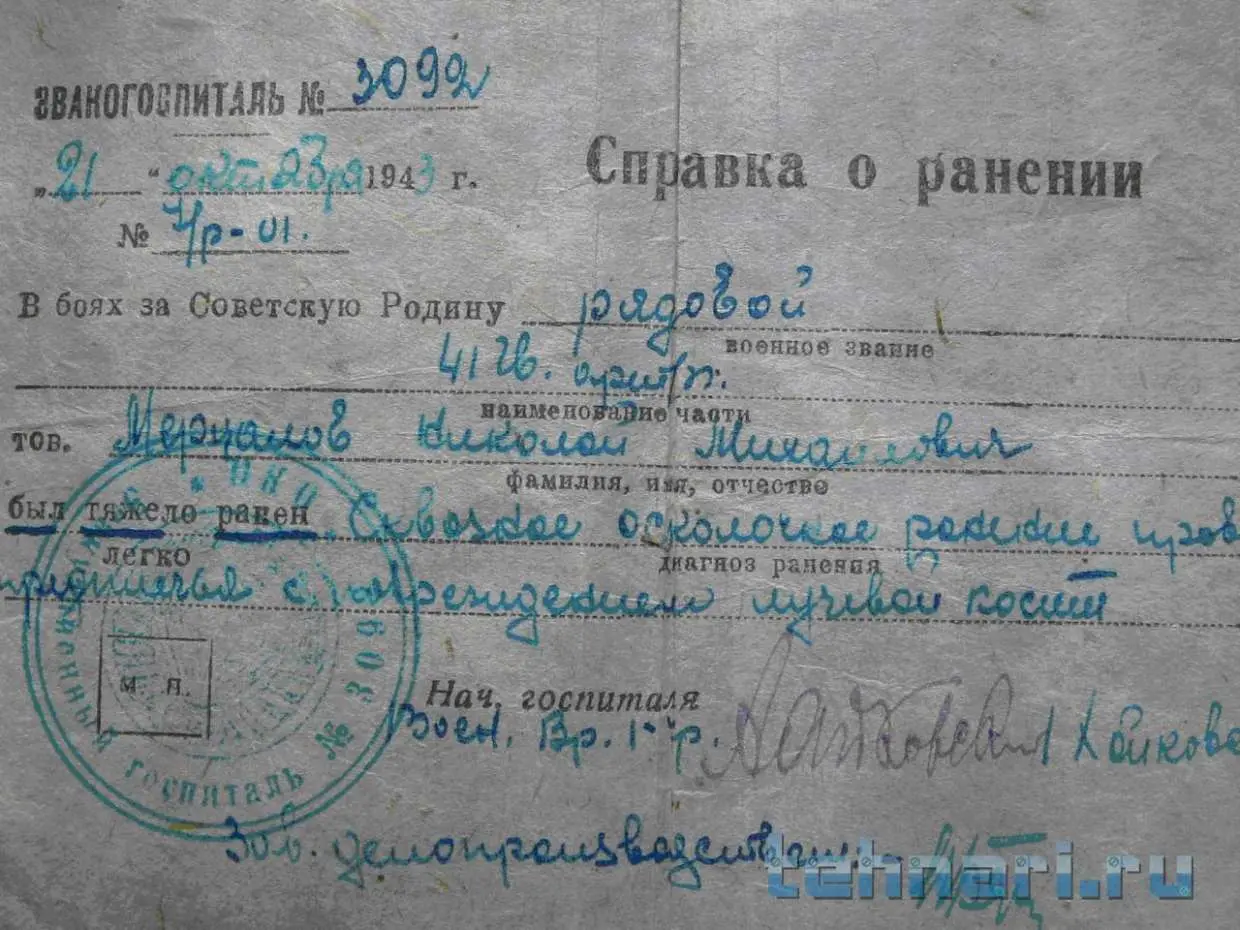 ЭВАКОГОСПИТАЛЬ № 3092
„21“ октября 1943 г.
№
Справка о ранении
В боях за Советскую Родину рядовой
военное звание
41 гв. арт/п.
наименование части
тов. Мерцалов Николай Михайлович
фамилия, имя, отчество
был тяжело ранен Сквозное осколочное ранение прав
легко
диагноз ранения
предплечья с повреждением лучевой кости
м п.
Нач. госпиталя
Воен. Вр. 1 р.
Зав. делопроизводством
госпиталь № 309
tehnari.ru